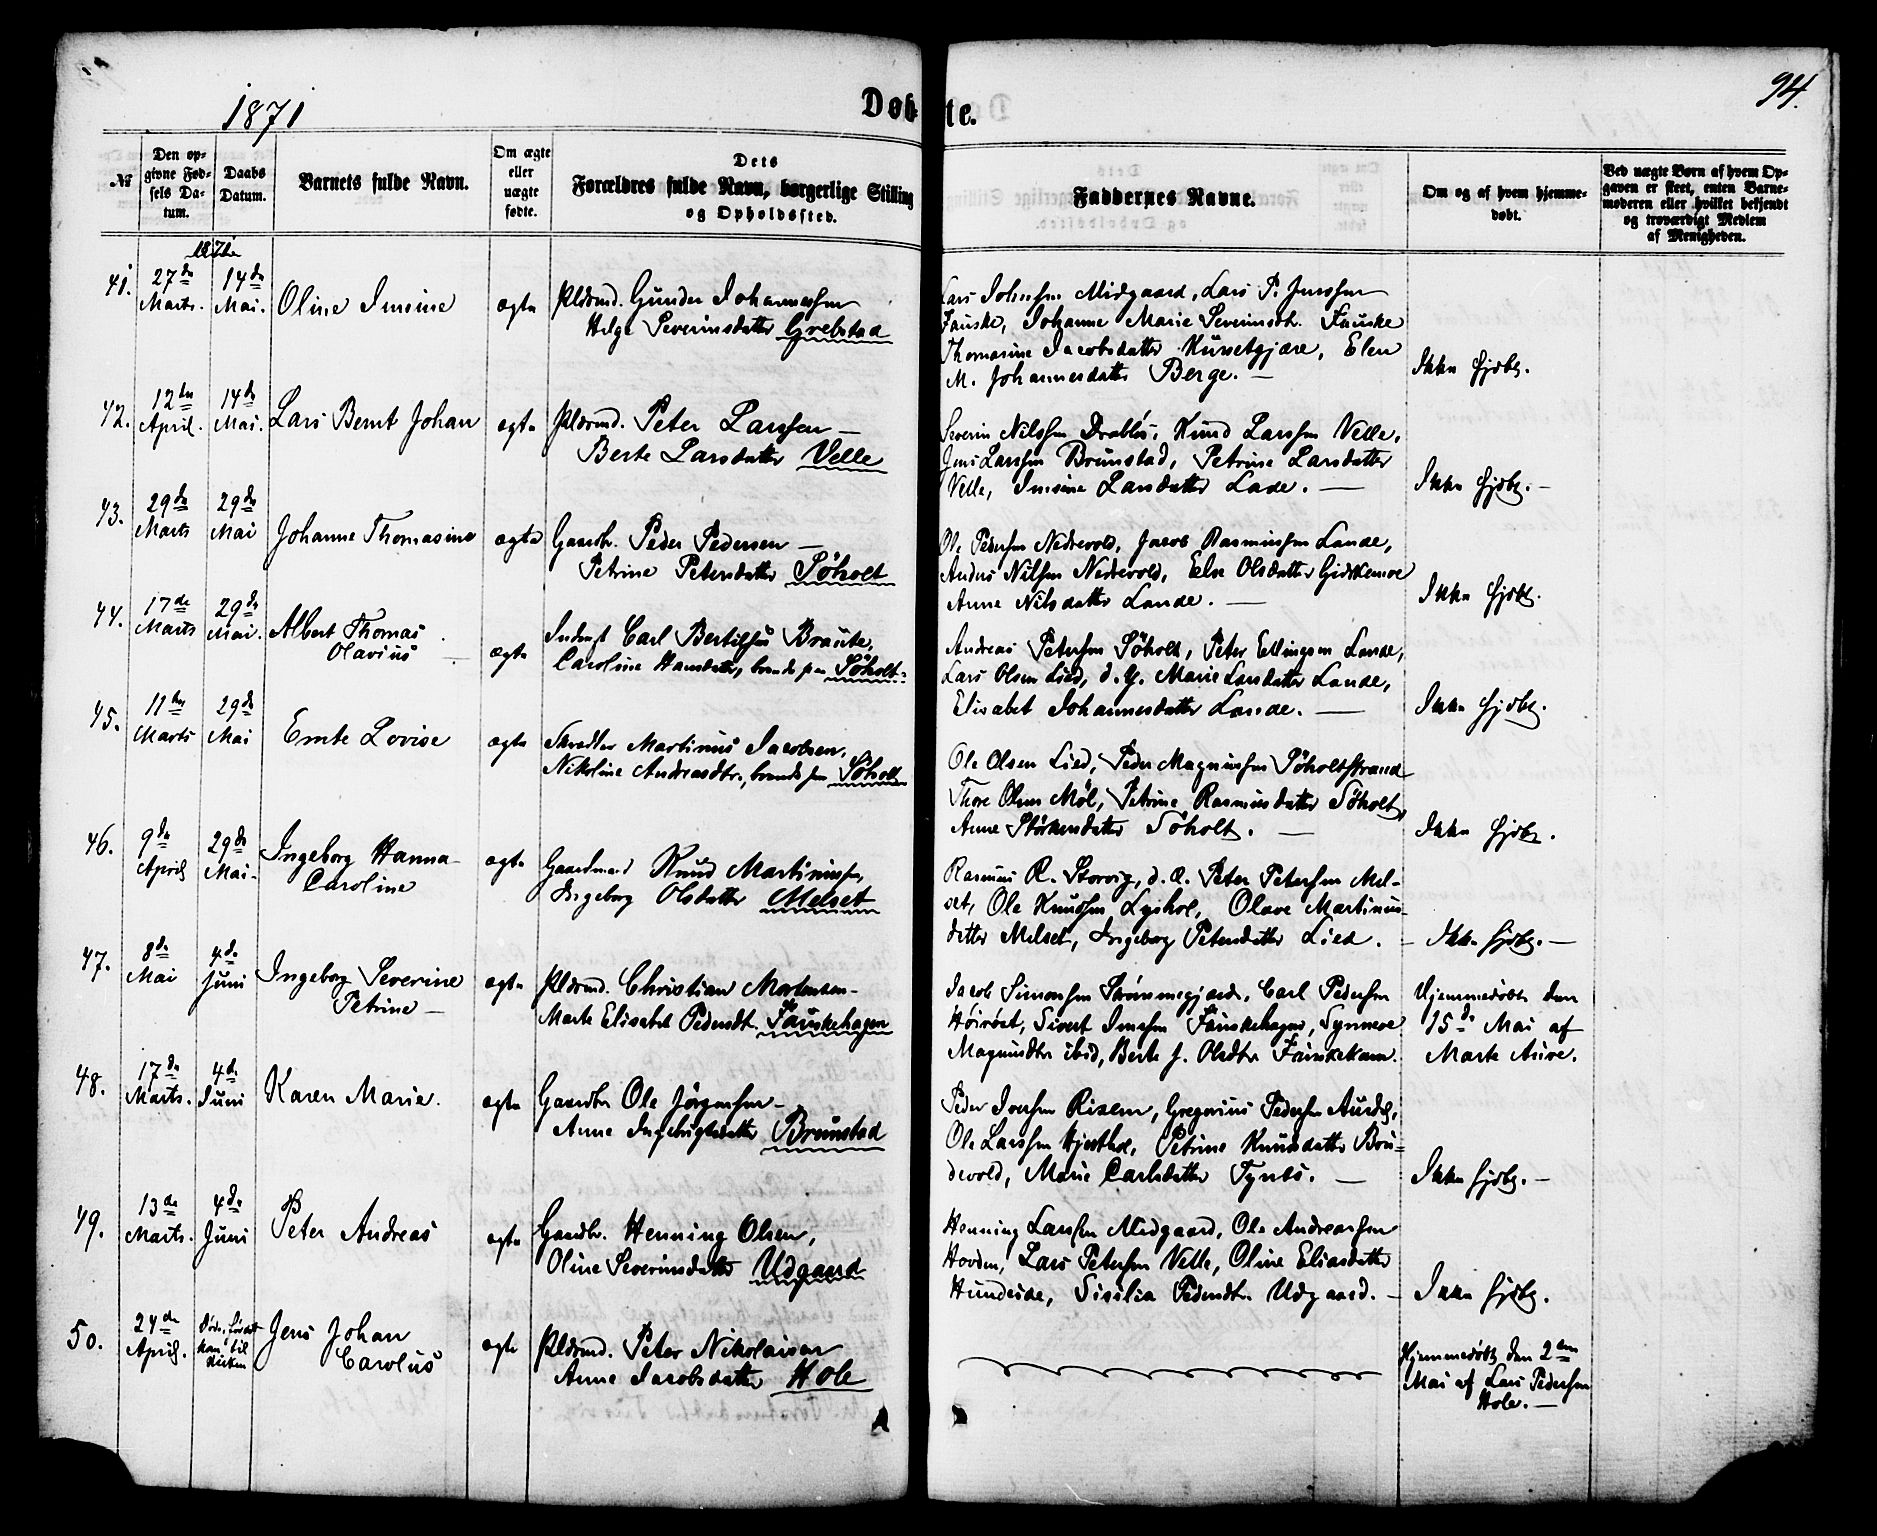 1871
Døb-te.
94.
№
Den op-
givne Fød-
sels Da-
tum.
Daabs
Datum.
Barnets fulde Navn.
Om ægte
eller
uægte
fødte.
Dets
Forældres fulde Navn, borgerlige Stilling
og Opholdssted.
Faddernes Navne.
Om og af hvem hjemme-
døbt.
Ved uægte Børn af hvem Op-
gaven er skeet, enten Barne-
moderen eller hvilket bekjendt
og troværdigt Medlem
af Menigheden.
1871
41.
27de
Marts.
14de
Mai.
Oline Insine
ægte
Pldsmd. Gunder Johannessen
Helge Severinsdatter Grebstad
Lars Johnsen Midgaard, Lars P. Jenssen
Fauske, Johanne Marie Severinsdt. Fauske
Thomasine Jacobsdatter Kursetgjære, Elen
M. Johannesdatter Berge. —
Ikke hjdbt.
42.
12te
April.
14de
Mai.
Lars Bernt Johan
ægte
Pldsmd. Peter Larssen —
Berte Larsdatter Velle
Severin Nilssen Drabløs, Knud Larssen Velle,
Jens Larssen Brunstad, Petrine Larsdatter
Velle, Insine Larsdatter Lade. —
Ikke hjdbt. —
43.
29de
Marts
29de
Mai
Johanne Thomasine
ægte
Gaardbr. Peder Pedersen —
Petrine Petersdatter Søholt
Ole Pedersen Nedrevold, Jacob Rasmussen Lande,
Anders Nilsen Nedrevold, Else Olsdatter Gidskemoe
Anne Nilsdatter Lande. —
Ikke hjdbt.
44.
17de
Marts
29de
Mai.
Albert Thomas
Olavius —
ægte
Inderst Carl Bertilsen Braute,
Caroline Hansdatter, boende paa Søholt.
Andreas Petersen Søholt, Peter Ellingsen Lande,
Lars Olsen Lied, d. y. Marie Larsdatter Lande,
Elisabet Johannesdatter Lande. —
Ikke hjdbt.
45.
11te
Marts
29de
Mai
Emte Lovise
ægte
Skrædder Martinus Jacobsen,
Nikoline Andreasdtr., boende paa Søholt
Ole Olsen Lied, Peder Magnussen Søholtstrand
Thore Olsen Møl, Petrine Rasmusdatter Søholt,
Anne Størkersdatter Søholt. —
Ikke hjdbt.
46.
9de
April
29de
Mai.
Ingeborg Hanna
Caroline
ægte
Gaardmand Knud Martinussen,
Ingeborg Olsdatter Melset
Rasmus R. Storvig, d. æ. Peter Petersen Mel-
set, Ole Knudsen Lyshol, Olave Martinus-
datter Melset, Ingeborg Petersdatter Lied. —
Ikke hjdbt. —
47.
8de
Mai
4de
Juni
Ingeborg Severine
Petrine —
ægte
Pldsmd. Christian Mortensen
Marte Elisabet Pedersdt. Fauskehagen
Jacob Simonsen Strømmegjærde, Carl Pedersen
Høirøst, Sivert Insesen Fauskehagen, Synneve
Magnusdtr ibid, Berte J. Olsdtr Fauskekam.
Hjemmedøbt den
15de Mai af
Marte Aure.
48.
17de
Marts.
4de
Juni
Karen Marie.
ægte
Gaardbr Ole Jørgensen —
Anne Ingebrigtsdatter Brunstad
Peder Iversen Risem, Gregorius Pedersen Aurdal,
Ole Larssen Hjorthol, Petrine Knudsdatter Bru-
devold, Marie Carlsdatter Tynes. —
Ikke hjdbt. —
49.
13de
Marts.
4de
Juni
Peter Andreas
ægte
Gaardbr. Henning Olsen,
Oline Severinsdatter Udgaard
Henning Larssen Midgaard, Ole Andreassen
Hovden, Lars Petersen Velle, Oline Eliasdatter
Hundeide, Sisilia Pedersdtr. Udgaard. —
Ikke hjdbt.
50.
24de
April.
Døde, førend
kom til
Kirken
Jens Johan
Carolus
ægte
Pldsmd. Peter Nikolaisen
Anne Jacobsdatter Hole
Hjemmedøbt den 2den
Mai af Lars Pedersen
Hole. —